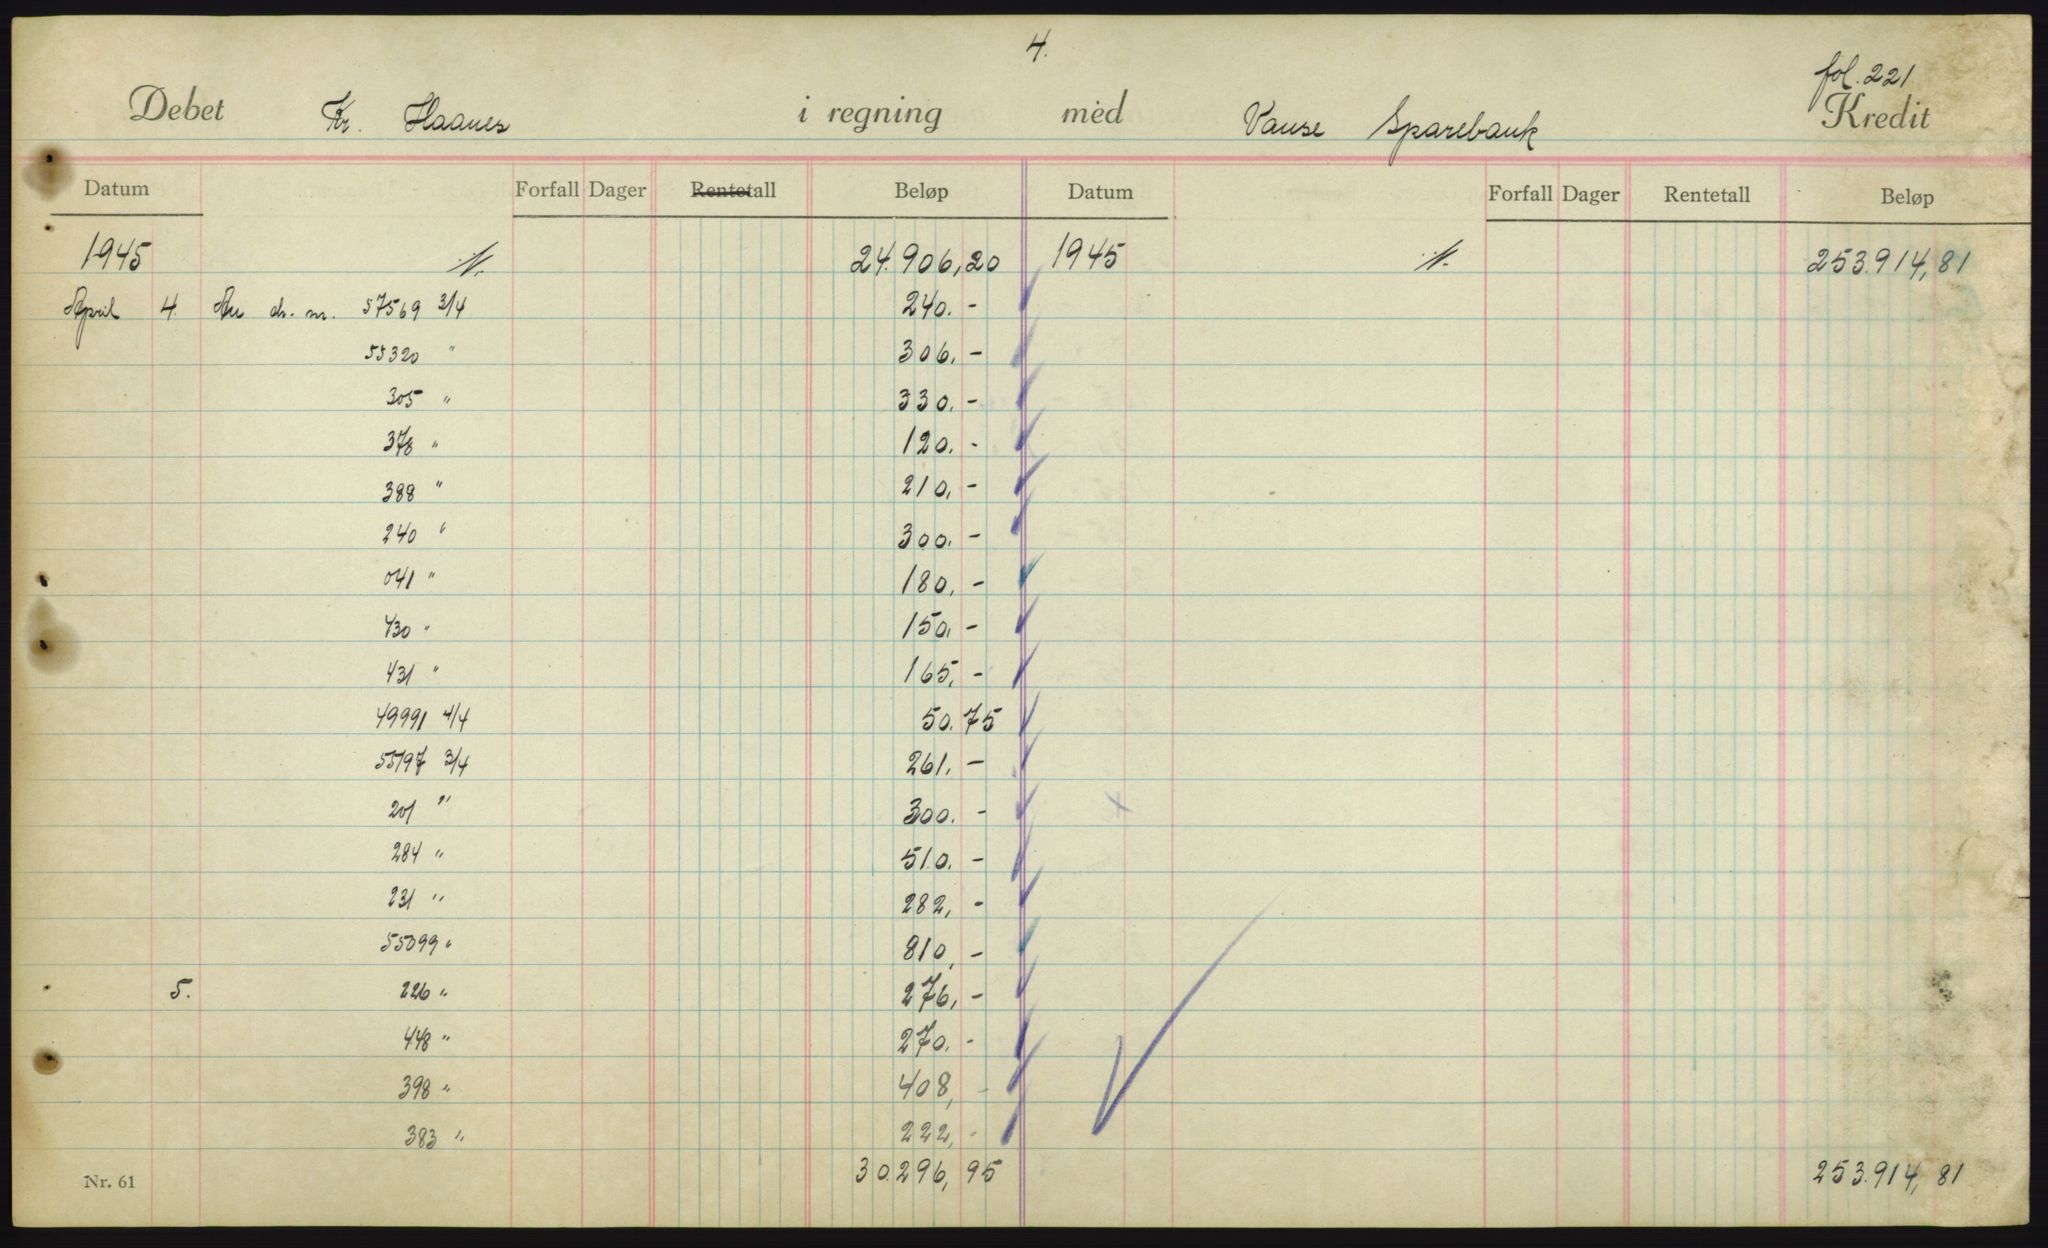 4.
fol. 221
Debet Kr. Haanes i regning med Vanse Sparebank Kredit
Datum Forfall Dager Rentetall Beløp Datum Forfall Dager Rentetall Beløp
1945 24.906,20 1945 253.914,81
April 4. An ch. nr. 57569 3/4 240.-
55320 " 306.-
305 " 330.-
378 " 120.-
388 " 210.-
240 " 300.-
041 " 180.-
430 " 150.-
431 " 165.-
49991 4/4 50.75
55197 3/4 261.-
201 " 300.-
284 " 510.-
231 " 282,-
55099 " 810,-
5. 226 " 276,-
448 " 270.-
398 " 408,-
383 " 222,-
Nr. 61 30.296,95 253.914,81